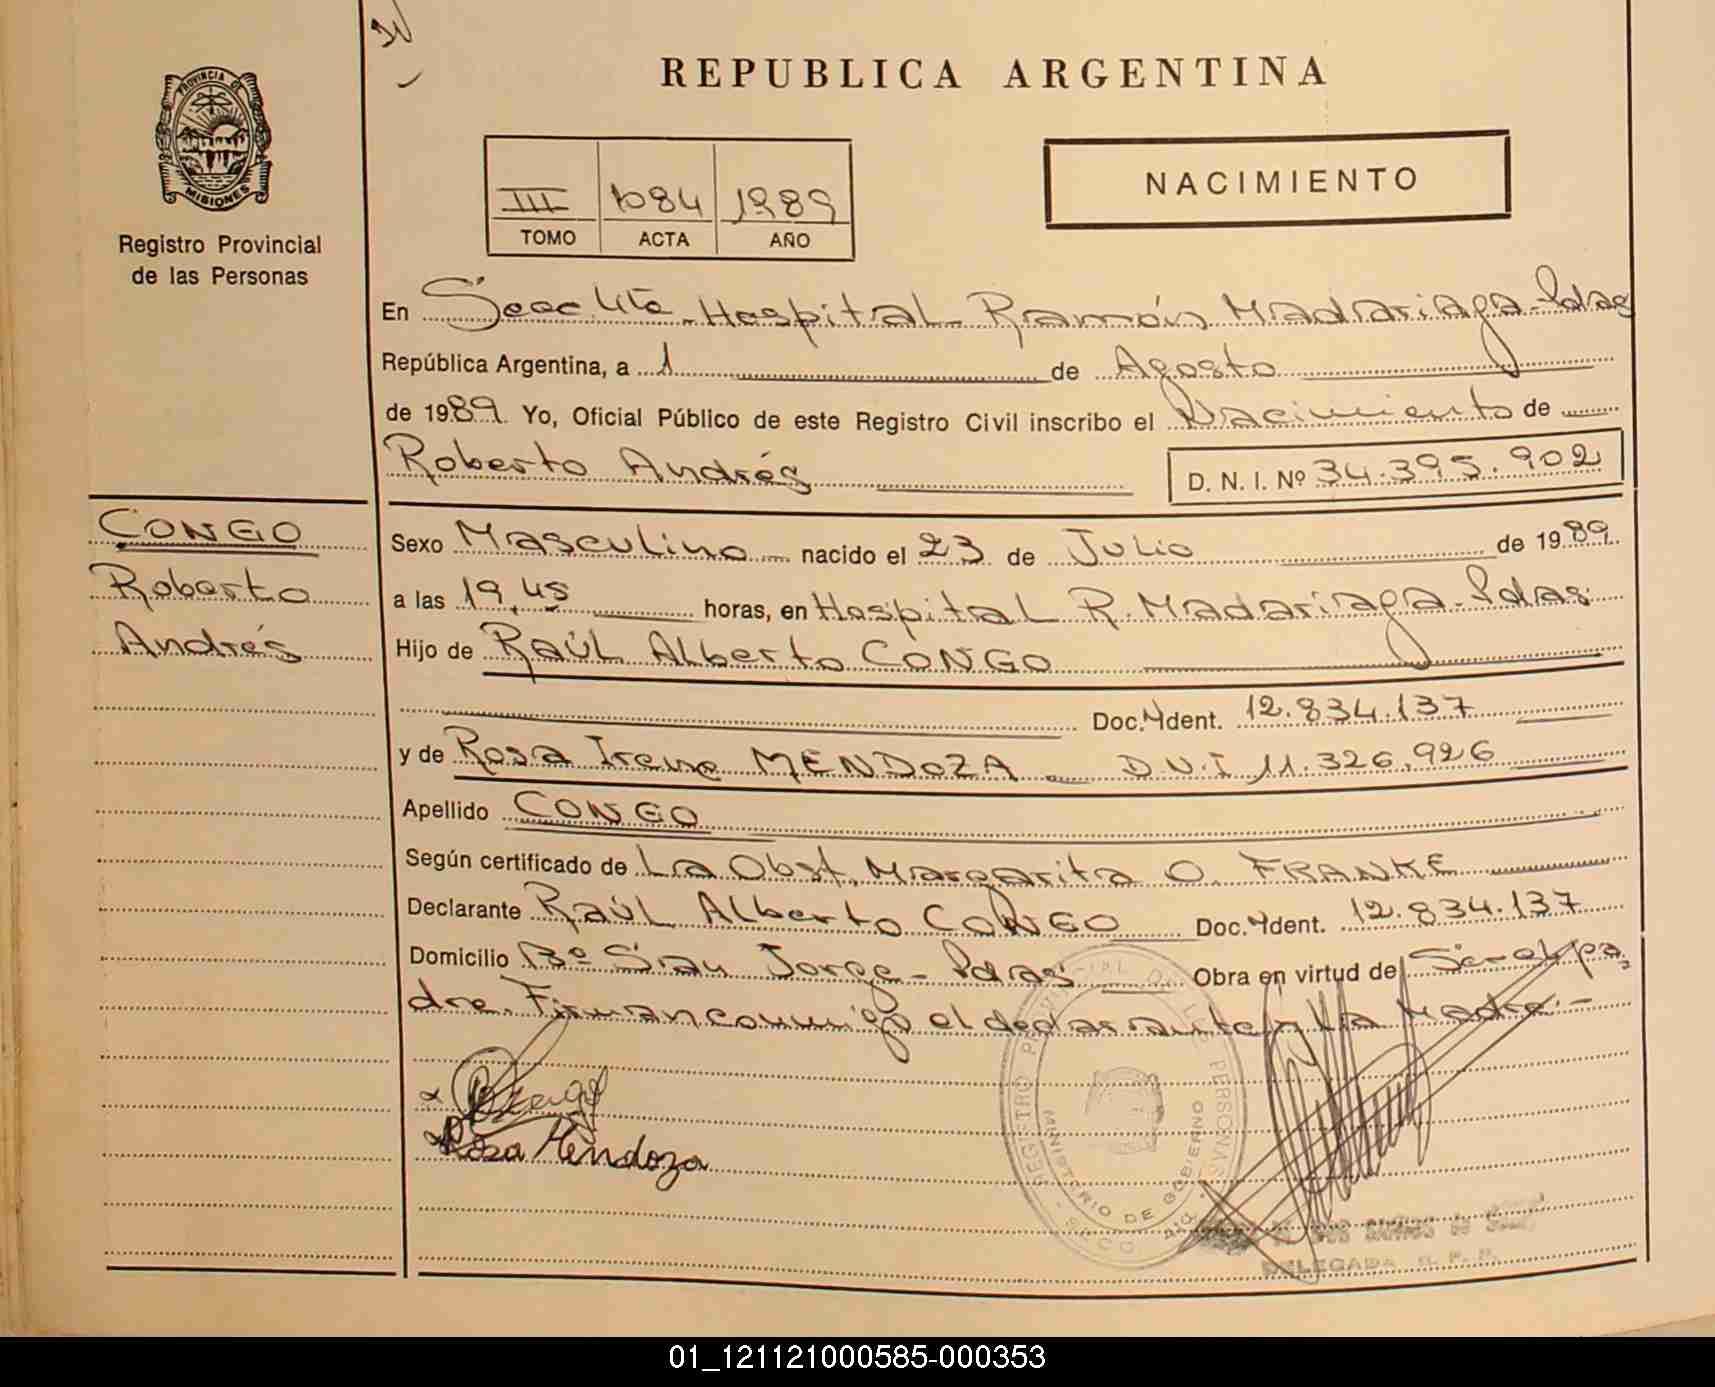 PROVINCIA DE
MISIONES
Registro Provincial
de las Personas
REPUBLICA ARGENTINA
III 1084 1989
TOMO ACTA AÑO
NACIMIENTO
En Secc. 4ta - Hospital Ramón Madariaga - Pdas
República Argentina, a 1 de Agosto
de 1989. Yo, Oficial Público de este Registro Civil inscribo el Nacimiento de
Roberto Andrés
D. N. I. Nº 34.395.902
CONGO
Roberto
Andrés
Sexo Masculino nacido el 23 de Julio de 1989.
a las 19,45 horas, en Hospital R. Madariaga - Pdas.
Hijo de Raúl Alberto CONGO
Doc. Ident. 12.834.137
y de Rosa Irene MENDOZA D.N.I 11.326.926
Apellido CONGO
Según certificado de La Obst. Margarita O. FRANKE
Declarante Raúl Alberto CONGO Doc. Ident. 12.834.137
Domicilio Bº San Jorge - Pdas Obra en virtud de Ser el pa
dre. Firman conmigo el declarante y la Madre.-
Rosa Mendoza
REGISTRO PROVINCIAL DE LAS PERSONAS
MINISTERIO DE GOBIERNO
DELEGADA R. P. P.
01_121121000585-000353